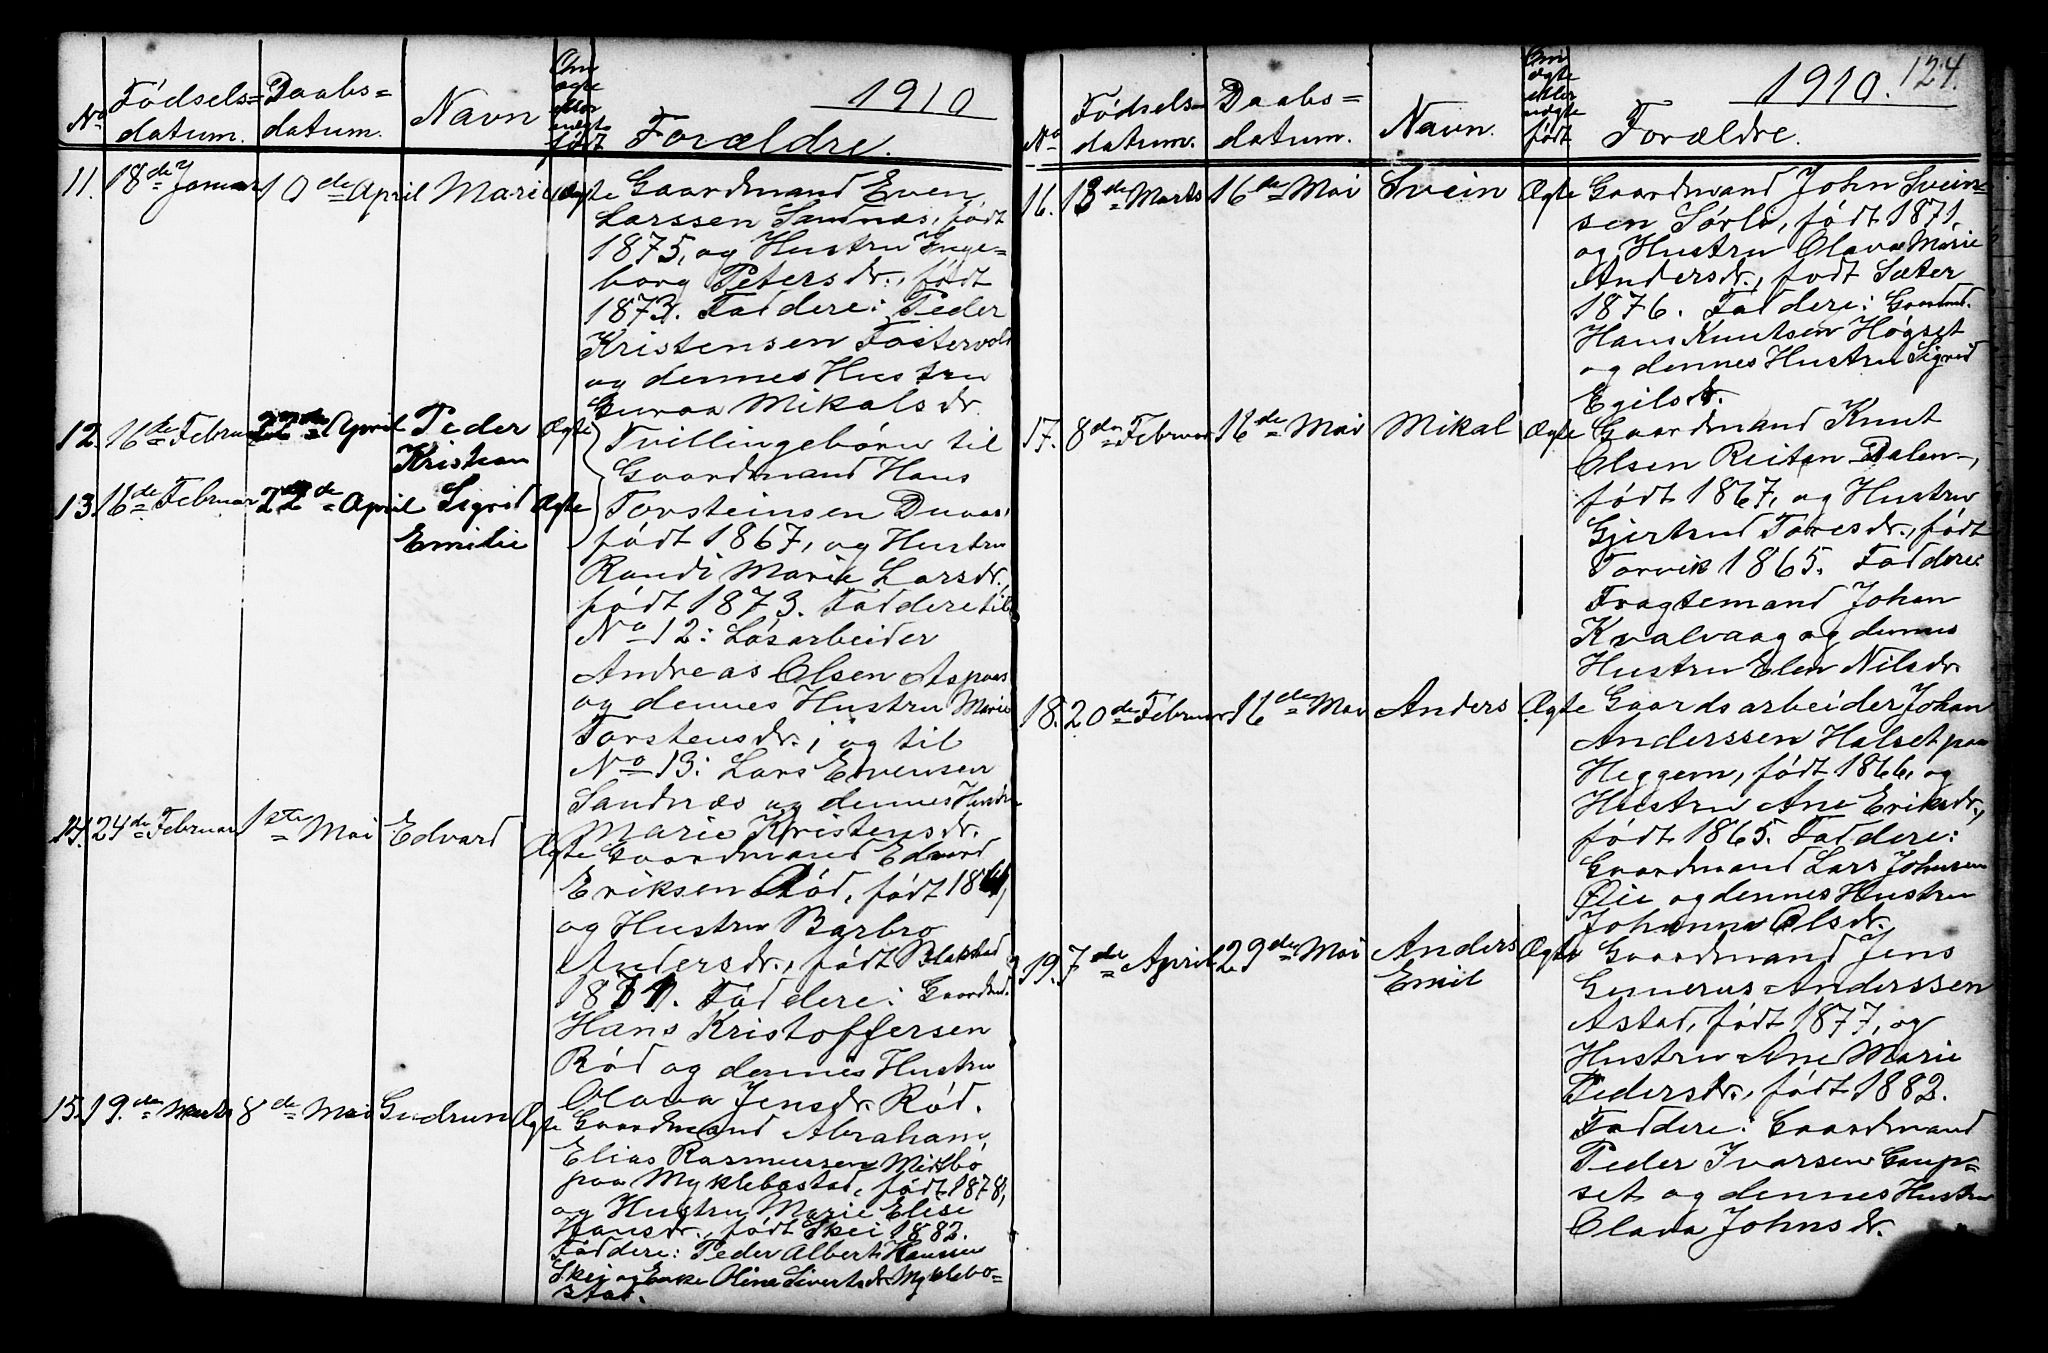 1910
No Fødsels= datum. Daabs= datum. Navn Om ægte eller uægte født Forældre.
11. 18de Januar 10de April Marie Ægte Gaardmand Even
Larssen Sandnæs, født
1875, og Hustru Inge=
borg Petersdr., født
1873. Faddere: Peder
Kristensen Fostervold
og dennes Hustru
Guraa Mikalsdr.
12. 16de Februar 22de April Peder Ægte Tvillingebørn til
Kristian Gaardmand Hans
13. 16de Februar 22de April Sigrid Ægte Torsteinsen
Emilie født 1867, og Hustru
Randi Marie Larsdr.,
født 1873. Faddere til
No 12: Løsarbeider
Andreas Olsen Aspaas
og dennes Hustru Marie
Torstensdr.; og til
No 13: Lars Evensen
Sandnæs og dennes Hustru
Marie Kristensdr.
14. 24de Februar 1ste Mai Edvard Ægte Gaardmand Edvard
Eriksen Rød, født
og Hustru Barbro
Andersdr., født Blakstad
Faddere: Gaardmd.
Hans Kristoffersen
Rød og dennes Hustru
Olava Jensdr. Rød.
15. 19de Marts 8de Mai Gudrun Ægte Gaardmand Abraham
Elias Rasmussen Midtbø
paa Myklebostad, født 1878,
og Hustru Marie Elise
Hansdr., født Skei 1882.
Faddere: Peder Albert Hanssen
Skei og Enke Oline Sivertsdr. Myklebo=
stad.
124.
1910.
No Fødsels= datum. Daabs= datum. Navn. Om ægte eller uægte født Forældre.
16. 13de Marts 16de Mai Svein Ægte Gaardmand John Svein=
sen Sørli, født 1871.
og Hustru Olava Marie
Andersdr., født Sæter
1876. Faddere: Gaardmd.
Hans Knutsen Høgset
og dennes Hustru Sigrid
Egilsdr.
17. 8de Februar 16de Mai Mikal Ægte Gaardmand Knut
Olsen Reiten Dalen,
født 1867, og Hustru
Gjertrud Toresdr., født
Torvik 1865. Faddere:
Fragtemand Johan
Kvalvaag og dennes
Hustru Elen Nilsdr.
18. 20de Februar 16de Mai Anders Ægte Gaardsarbeider Johan
Anderssen Halset paa
Heggem, født 1866, og
Hustru Ane Eriksdr.,
født 1865. Faddere:
Gaardmand Lars Johnsen
Øie og dennes Hustru
Johanna Olsdr.
19. 7de April 29de Mai Anders Ægte Gaardmand Jens
Emil Gunerus Anderssen
Astad, født 1877, og
Hustru Ane Marie
Pedersdr., født 1882.
Faddere: Gaardmand
Peder Ivarsen Gaup=
set og dennes Hustru
Olava Johnsdr.